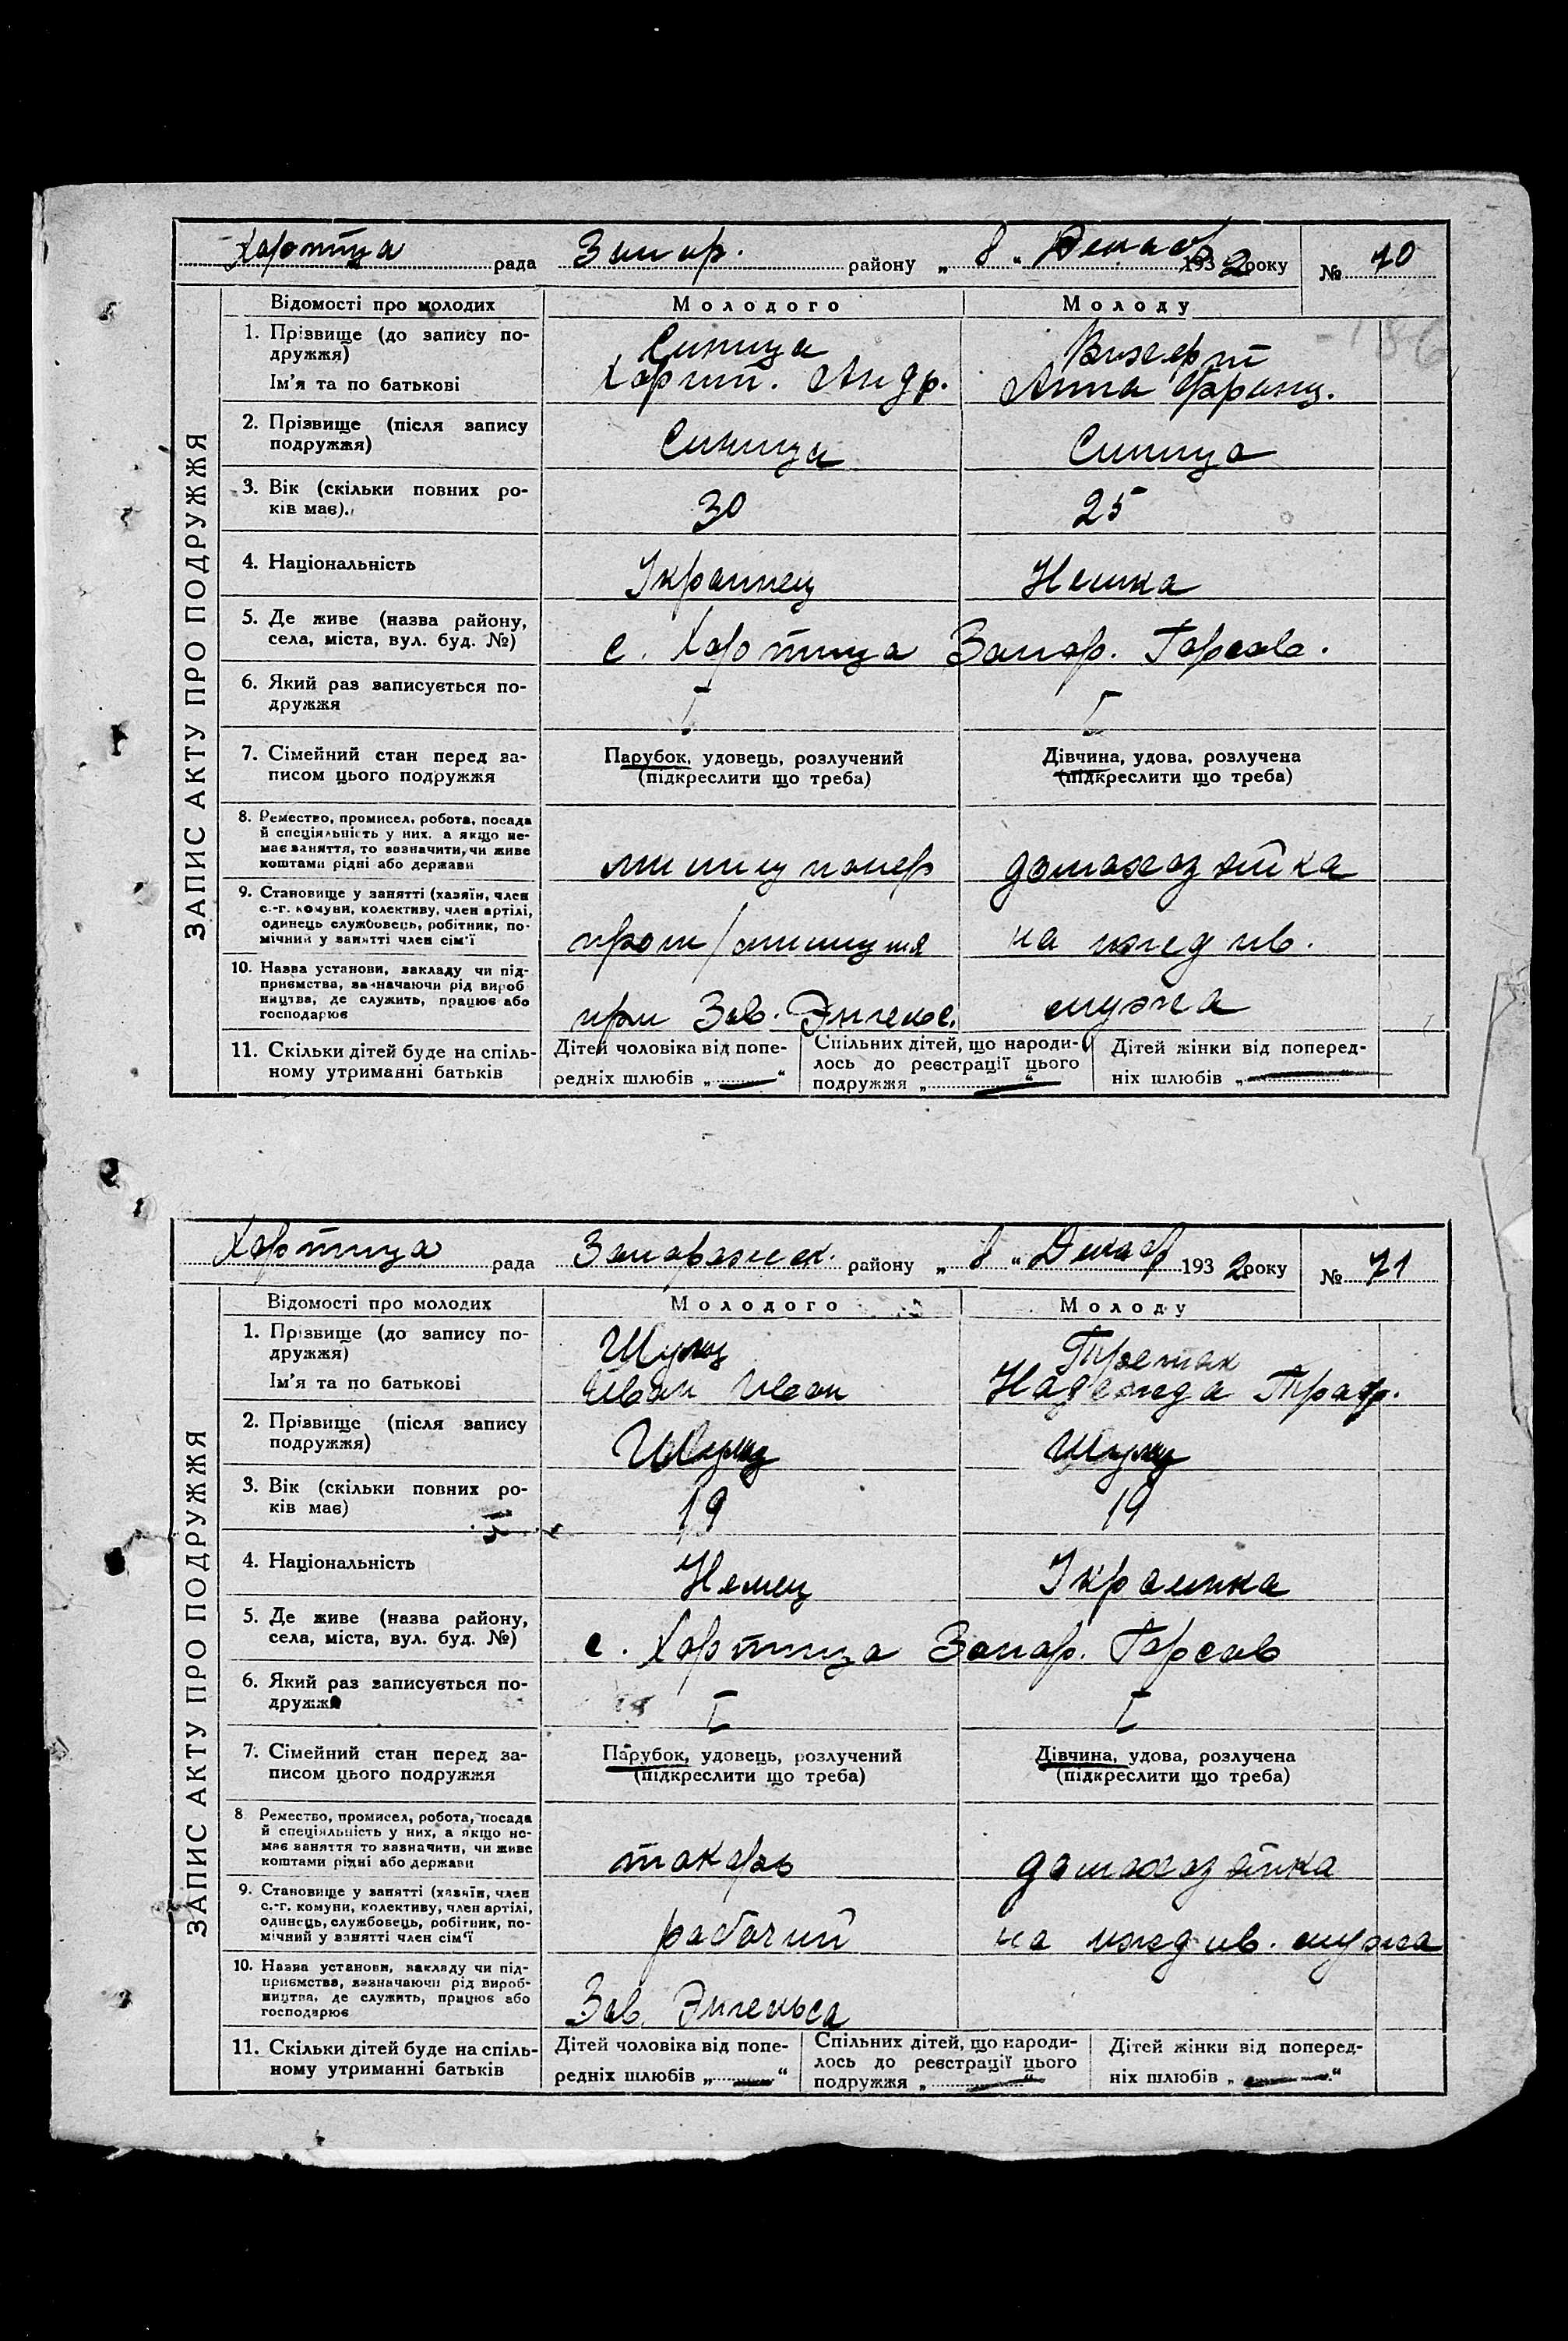 Хортица рада Запор. району „ 8 “ Декабр 1932 року № 70
186
Відомості про молодих Молодого Молоду
ЗАПИС АКТУ ПРО ПОДРУЖЖЯ
1. Прізвище (до запису по-
дружжя)
Синица Вихерт
Ім’я та по батькові Харит. Андр. Анна Франц.
2. Прізвище (після запису
подружжя)
Синица Синица
3. Вік (скільки повних ро-
ків має).
30 25
4. Національність Украинец Немка
5. Де живе (назва району,
села, міста, вул. буд. №)
с. Хортица Запор. Горсов.
6. Який раз записується по-
дружжя
I I
7. Сімейний стан перед за-
писом цього подружжя
Парубок, удовець, розлучений
(підкреслити що треба)
Дівчина, удова, розлучена
(підкреслити що треба)
8. Ремество, промисел, робота, посада
й спеціяльність у них, а якщо не-
має заняття, то зазначити, чи живе
коштами рідні або держави
милиционер домохозяйка
9. Становище у занятті (хазяїн, член
с.-г. комуни, колективу, член артілі,
одинець службовець, робітник, по-
мічний у занятті член сім’ї
пром/милиция на иждив.
10. Назва установи, закладу чи під-
приємства, зазначаючи рід вироб
ництва, де служить, працює або
господарює
при Зав. Энгельс. мужа
11. Скільки дітей буде на спіль-
ному утриманні батьків
Дітей чоловіка від попе-
редніх шлюбів „ — “
Спільних дітей, що народи-
лось до реєстрації цього
подружжя „ — “
Дітей жінки від поперед-
ніх шлюбів „ — “
Хортица рада Запорожск. району „ 8 “ Декабр 1932 року № 71
Відомості про молодих Молодого Молоду
ЗАПИС АКТУ ПРО ПОДРУЖЖЯ
1. Прізвище (до запису по-
дружжя)
Шульц Третяк
Ім’я та по батькові Иван Иван Надежда Троф.
2. Прізвище (після запису
подружжя)
Шульц Шульц
3. Вік (скільки повних ро-
ків має)
19 19
4. Національність Немец Украинка
5. Де живе (назва району,
села, міста, вул. буд. №)
с. Хортица Запор. Горсов
6. Який раз записується по-
дружжя
I I
7. Сімейний стан перед за-
писом цього подружжя
Парубок, удовець, розлучений
(підкреслити що треба)
Дівчина, удова, розлучена
(підкреслити що треба)
8 Ремество, промисел, робота, посада
й спеціяльність у них, а якщо не-
має заняття то зазначити, чи живе
коштами рідні або держави
токарь домохозяйка
9. Становище у занятті (хазяїн, член
с.-г. комуни, колективу, член артілі,
одинець, службовець, робітник, по-
мічний у занятті член сім’ї
рабочий на иждив. мужа
10. Назва установи, закладу чи під-
приємства, зазначаючи рід вироб-
ництва, де служить, працює або
господарює
Зав. Энгельса
11. Скільки дітей буде на спіль-
ному утриманні батьків
Дітей чоловіка від попе-
редніх шлюбів „ — “
Спільних дітей, що народи-
лось до реєстрації цього
подружжя „ — “
Дітей жінки від поперед-
ніх шлюбів „ — “